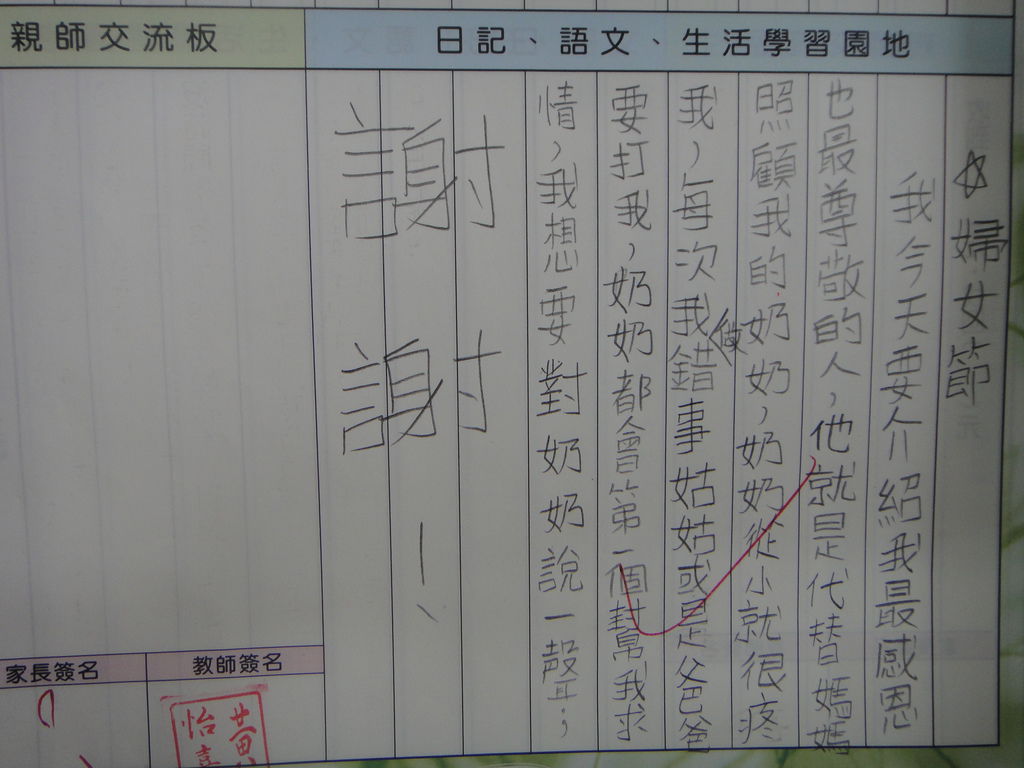 日記、語文、生活學習園地
☆婦女節
我今天要介紹我最感恩
也最尊敬的人，他就是代替媽媽
照顧我的奶奶，奶奶從小就很疼
我，每次我做錯事姑姑或是父巴爸
要打我，奶奶都會第一個幫我求
情，我想要對奶奶說一聲：
謝謝！
親師交流板
家長簽名
教師簽名
黃
怡